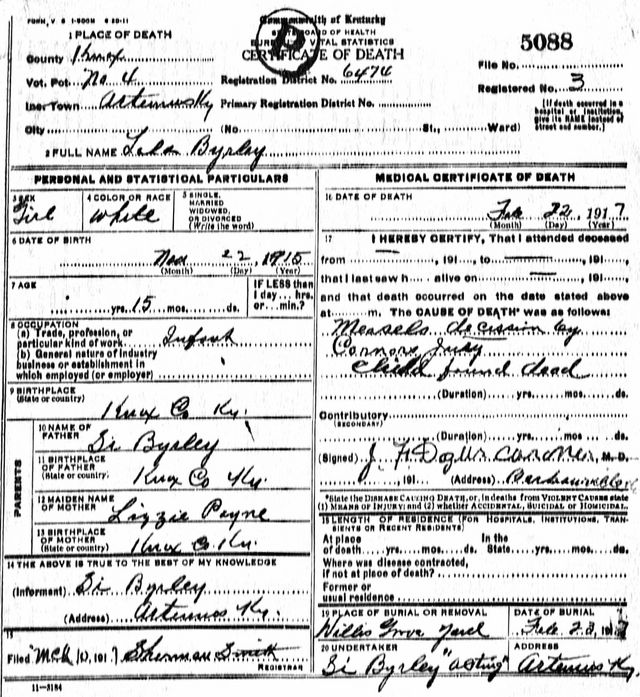 FORM. V S 1-500M 6 20-11
Commonwealth of Kentucky
STATE BOARD OF HEALTH
BUREAU OF VITAL STATISTICS
CERTIFICATE OF DEATH
5088
1 PLACE OF DEATH
County Knox
Vot. Pct. No. 4
Inc. Town Artemus Ky
City
Registration District No. 6474
Primary Registration District No.
(No. St., Ward)
File No.
Registered No. 3
[If death occurred in a
hospital or institution,
give its NAME instead of
street and number.]
2 FULL NAME Byrley
PERSONAL AND STATISTICAL PARTICULARS
3 SEX
Girl
4 COLOR OR RACE
White
5 SINGLE,
MARRIED
WIDOWED,
OR DIVORCED
(Write the word)
6 DATE OF BIRTH
Nov 22, 1915
(Month) (Day) (Year)
7 AGE
yrs. 15 mos. ds.
IF LESS than
1 day... hrs.
or... min.?
8 OCCUPATION
(a) Trade, profession, or
particular kind of work Infant
(b) General nature of industry
business or establishment in
which employed (or employer)
9 BIRTHPLACE
(State or country)
Knox Co Ky.
PARENTS
10 NAME OF
FATHER
Si Byrley
11 BIRTHPLACE
OF FATHER
(State or country)
Knox Co Ky.
12 MAIDEN NAME
OF MOTHER
Lizzie Payne
13 BIRTHPLACE
OF MOTHER
(State or country)
Knox Co Ky.
14 THE ABOVE IS TRUE TO THE BEST OF MY KNOWLEDGE
(Informant) Si Byrley
(Address) Artemus Ky.
15
Filed Mch 10, 1917 Sherman Smith
REGISTRAR
11—3184
MEDICAL CERTIFICATE OF DEATH
16 DATE OF DEATH
Feb 22, 1917
(Month) (Day) (Year)
17 I HEREBY CERTIFY, That I attended deceased
from , 191 , to , 191 ,
that I last saw h alive on , 191 ,
and that death occurred on the date stated above
at m. The CAUSE OF DEATH* was as follows:
Measels decission by
Cornors Jury
Child found dead
(Duration) yrs. mos. ds.
Contributory
(SECONDARY)
(Duration) yrs. mos ds.
(Signed) J. F. Coroner, M. D.
, 191 (Address)
*State the DISEASE CAUSING DEATH, or, in deaths from VIOLENT CAUSES state
(1) MEANS OF INJURY; and (2) whether ACCIDENTAL, SUICIDAL or HOMICIDAL.
18 LENGTH OF RESIDENCE (FOR HOSPITALS, INSTITUTIONS, TRANSIENTS OR RECENT RESIDENTS)
At place In the
of death yrs. mos. ds. State yrs. mos. ds.
Where was disease contracted,
if not at place of death?
Former or
usual residence
19 PLACE OF BURIAL OR REMOVAL
Willis Grove Yard
DATE OF BURIAL
Feb. 23, 1917
20 UNDERTAKER
Si Byrley "acting"
ADDRESS
Artemus Ky.